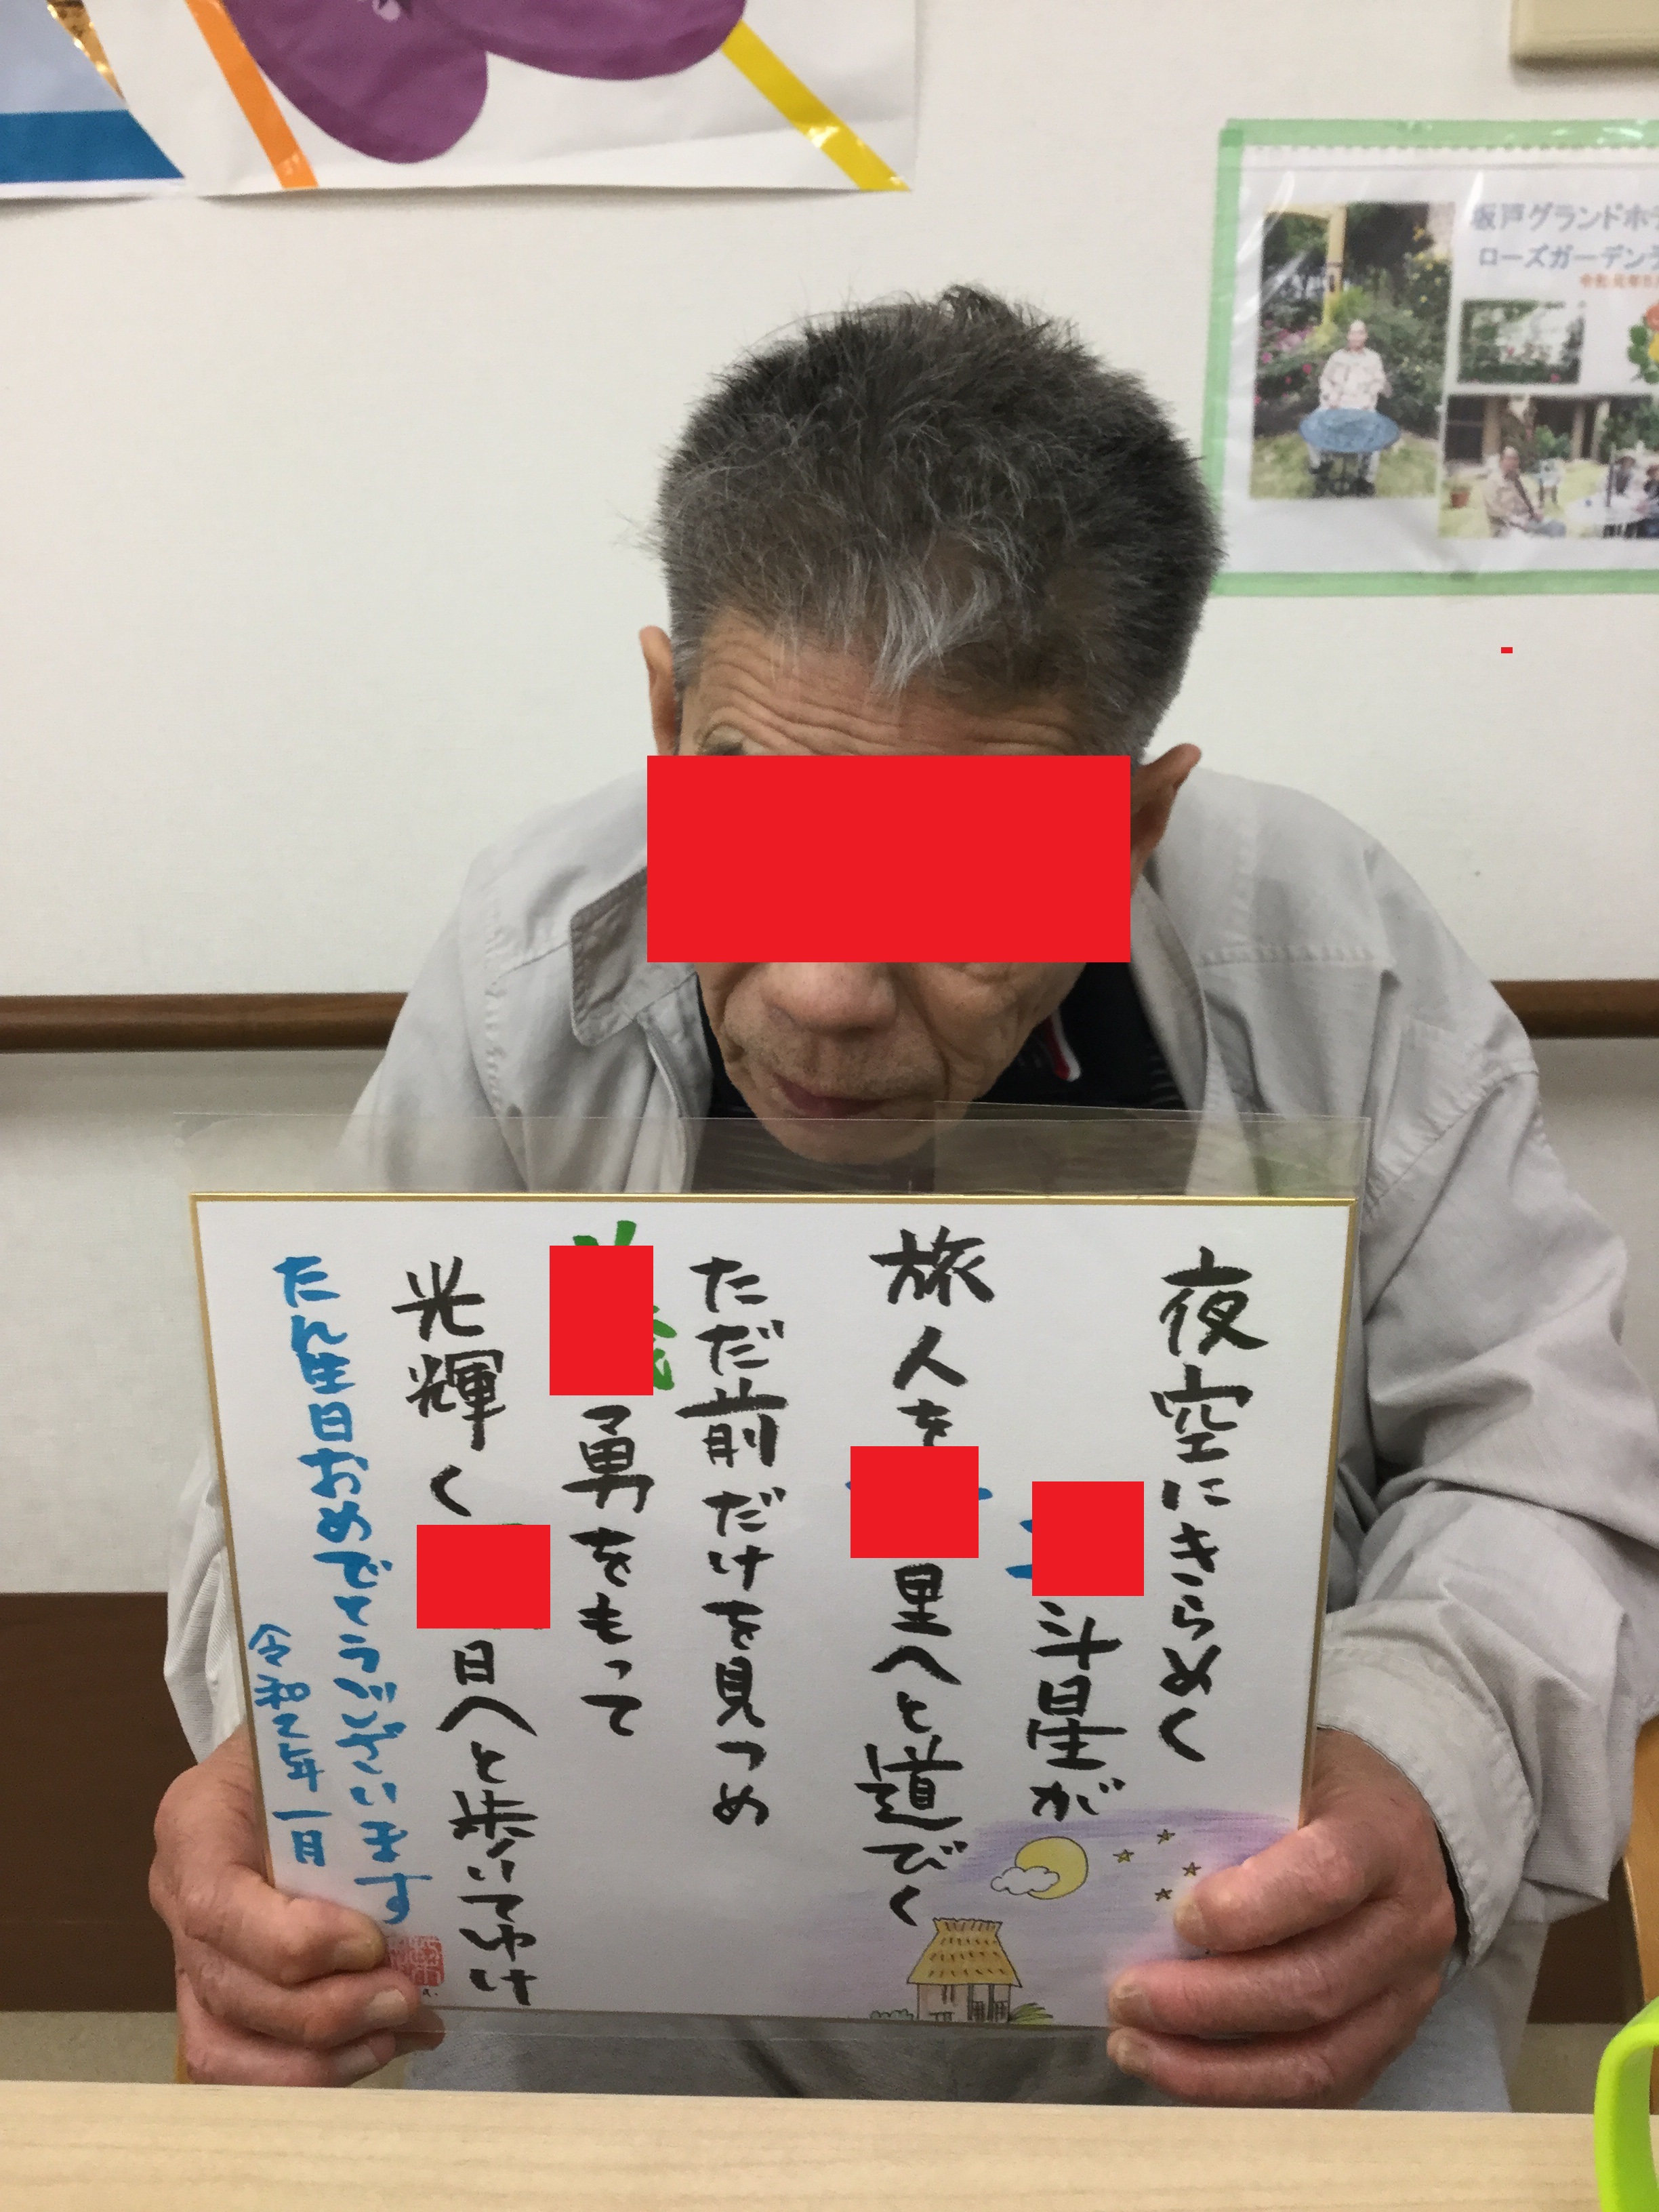 坂戸グランドホテ
ローズガーデンラ
夜空にきらめく
斗星が
旅人を
里へと道びく
ただ前だけを見つめ
勇をもって
光輝く
日へと歩いてゆけ
たん生日おめでとうございます
令和2年一月